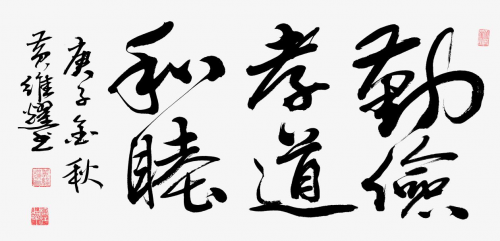 勤儉
孝道
和睦
庚子金秋
黄維耀书